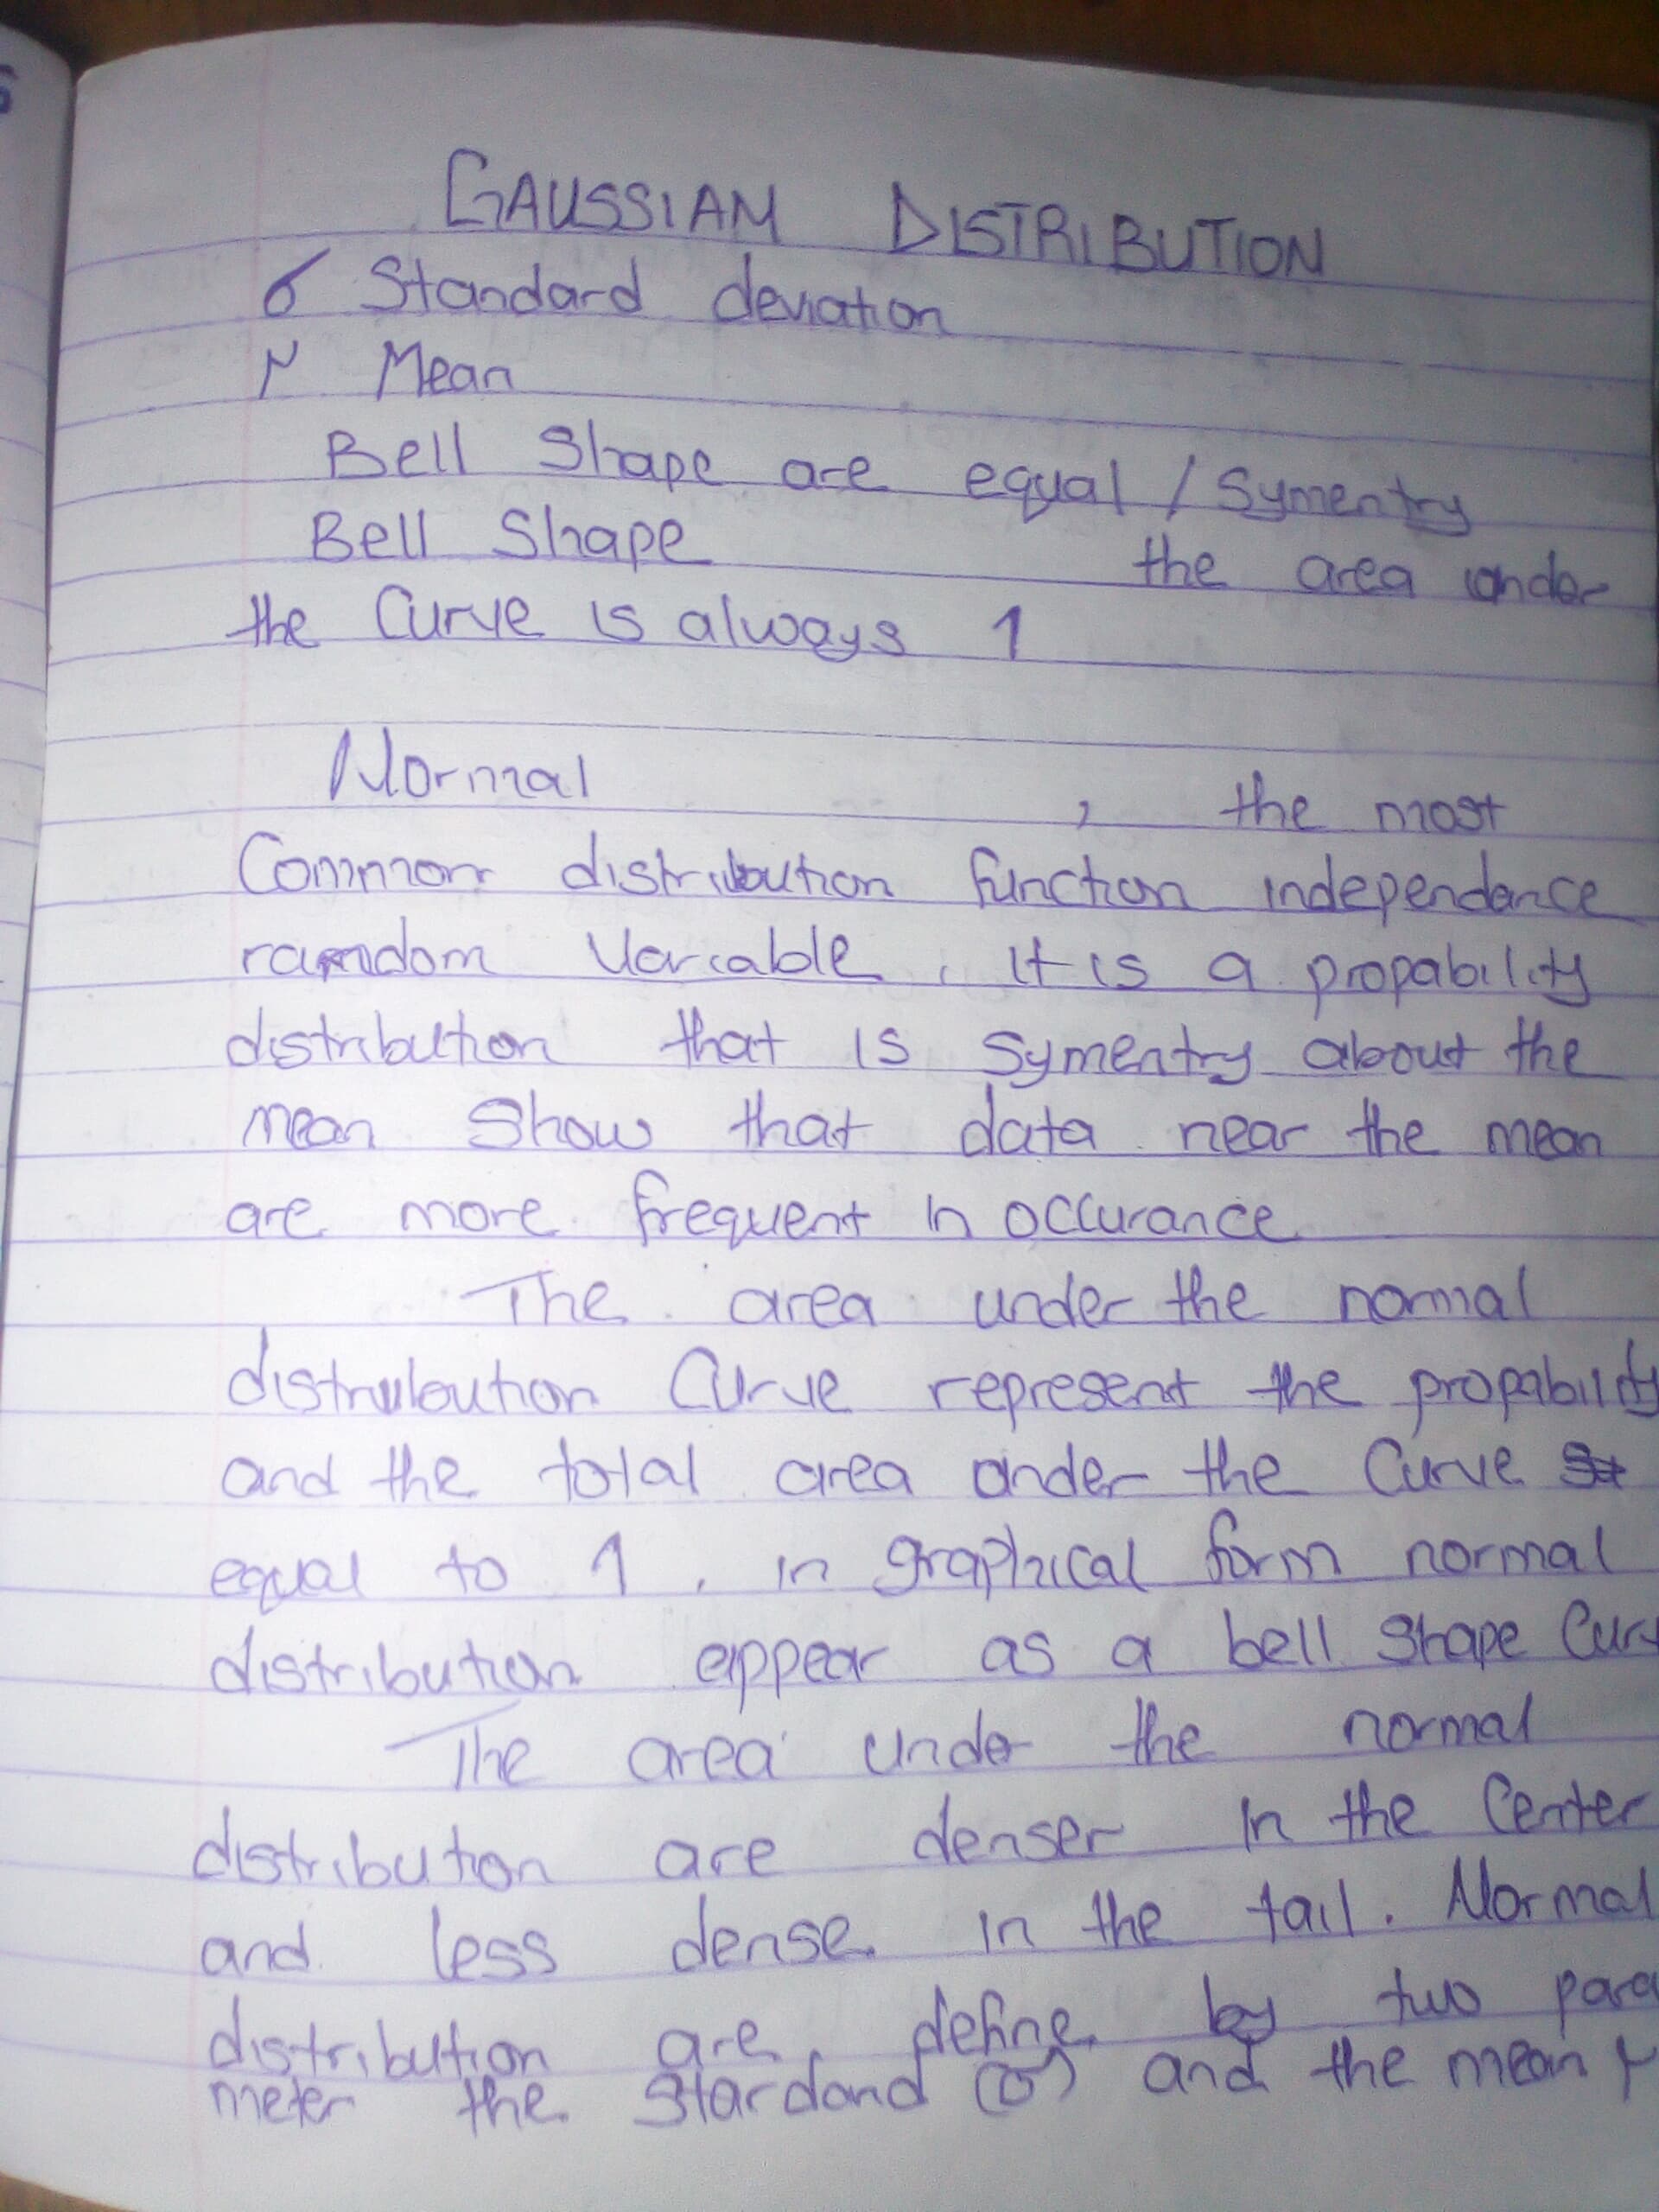 GAUSSIAM DISTRIBUTION
σ Standard deviation
μ Mean
Bell Shape are equal / Symentry
Bell Shape the area under
the Curve is always 1
Normal , the most
Common distribution function independance
random Variable . It is a propability
distribution that is Symentry about the
mean Show that data near the mean
are more frequent in occurance
The area under the normal
distribution Curve represent the propability
and the total area under the Curve
equal to 1 . in graphical form normal
distribution appear as a bell Shape Curv
The area under the normal
distribution are denser in the Center
and less dense in the tail. Normal
distribution are define by two para
meter the Stardand (σ) and the mean μ